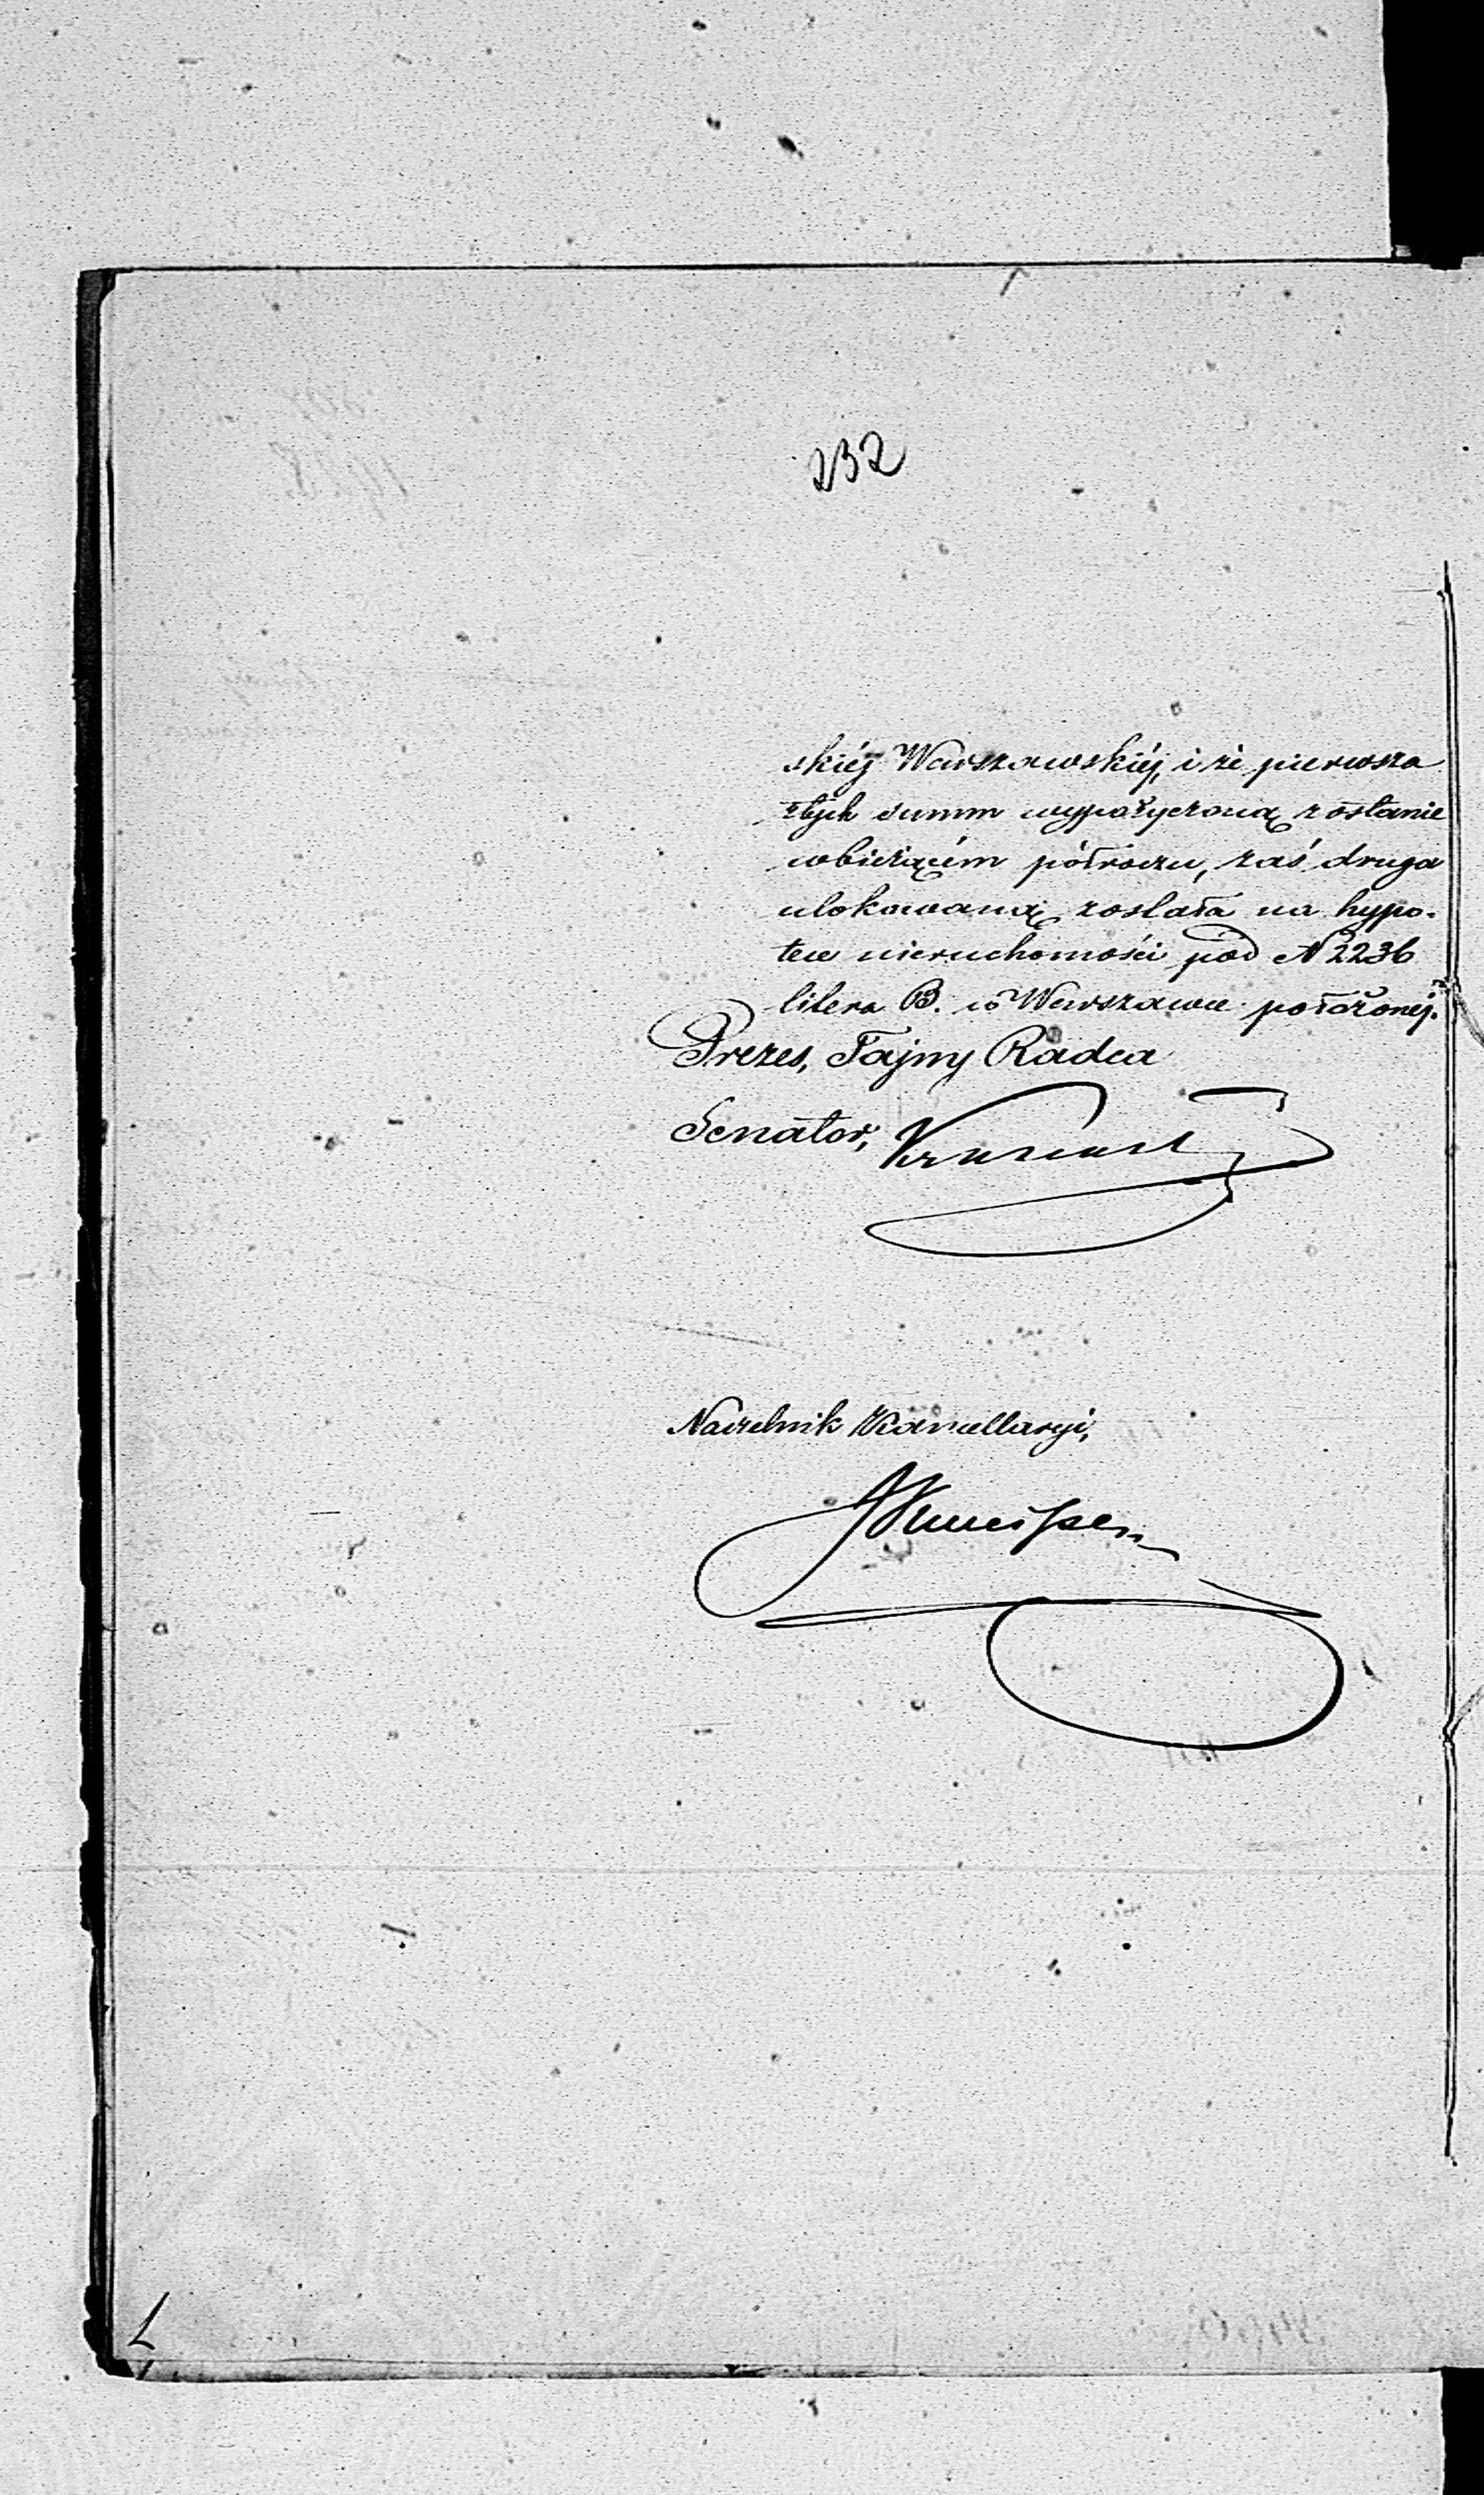 232
skiéj Warszawskiéj, i że pierwsza
z tych summ wypożyczoną zostanie
w bieżącém półroczu, zaś druga
ulokowaną została na hypo-
tece nieruchomości pod N 2236
litera B. w Warszawie położonéj.
Prezes, Tajny Radca
Senator,
Naczelnik Kancellaryi,